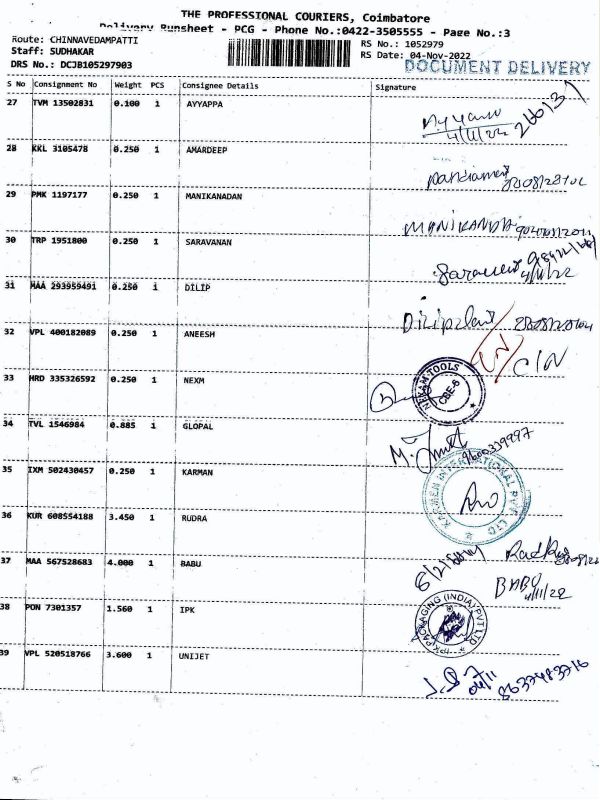 THE PROFESSIONAL COURIERS, Coimbatore
Delivery Runsheet - PCG - Phone No.:0422-3505555 - Page No.:3
Route: CHINNAVEDAMPATTI
Staff: SUDHAKAR
DRS No.: DCJB105297903
RS No.: 1052979
RS Date: 04-Nov-2022
DOCUMENT DELIVERY
S No Consignment No Weight PCS Consignee Details Signature
27 TVM 13502831 0.100 1 AYYAPPA
4/11/22
28 KKL 3105478 0.250 1 AMARDEEP
29 PMK 1197177 0.250 1 MANIKANADAN
MANIKANDA
30 TRP 1951800 0.250 1 SARAVANAN
4/11/22
31 MAA 293959491 0.250 1 DILIP
32 VPL 400182089 0.250 1 ANEESH
CIN
33 HRD 335326592 0.250 1 NEXM
TOOLS
CBE-6
34 TVL 1546984 0.885 1 GLOPAL
9600339997
35 IXM 502430457 0.250 1 KARMAN
INTERNATIONAL PVT. LTD
36 KUR 608554188 3.450 1 RUDRA
37 MAA 567528683 4.000 1 BABU
BABU
4/11/22
38 PON 7301357 1.560 1 IPK
IPK PACKAGING (INDIA) PVT LTD
39 VPL 520518766 3.600 1 UNIJET
04/11
8637483716